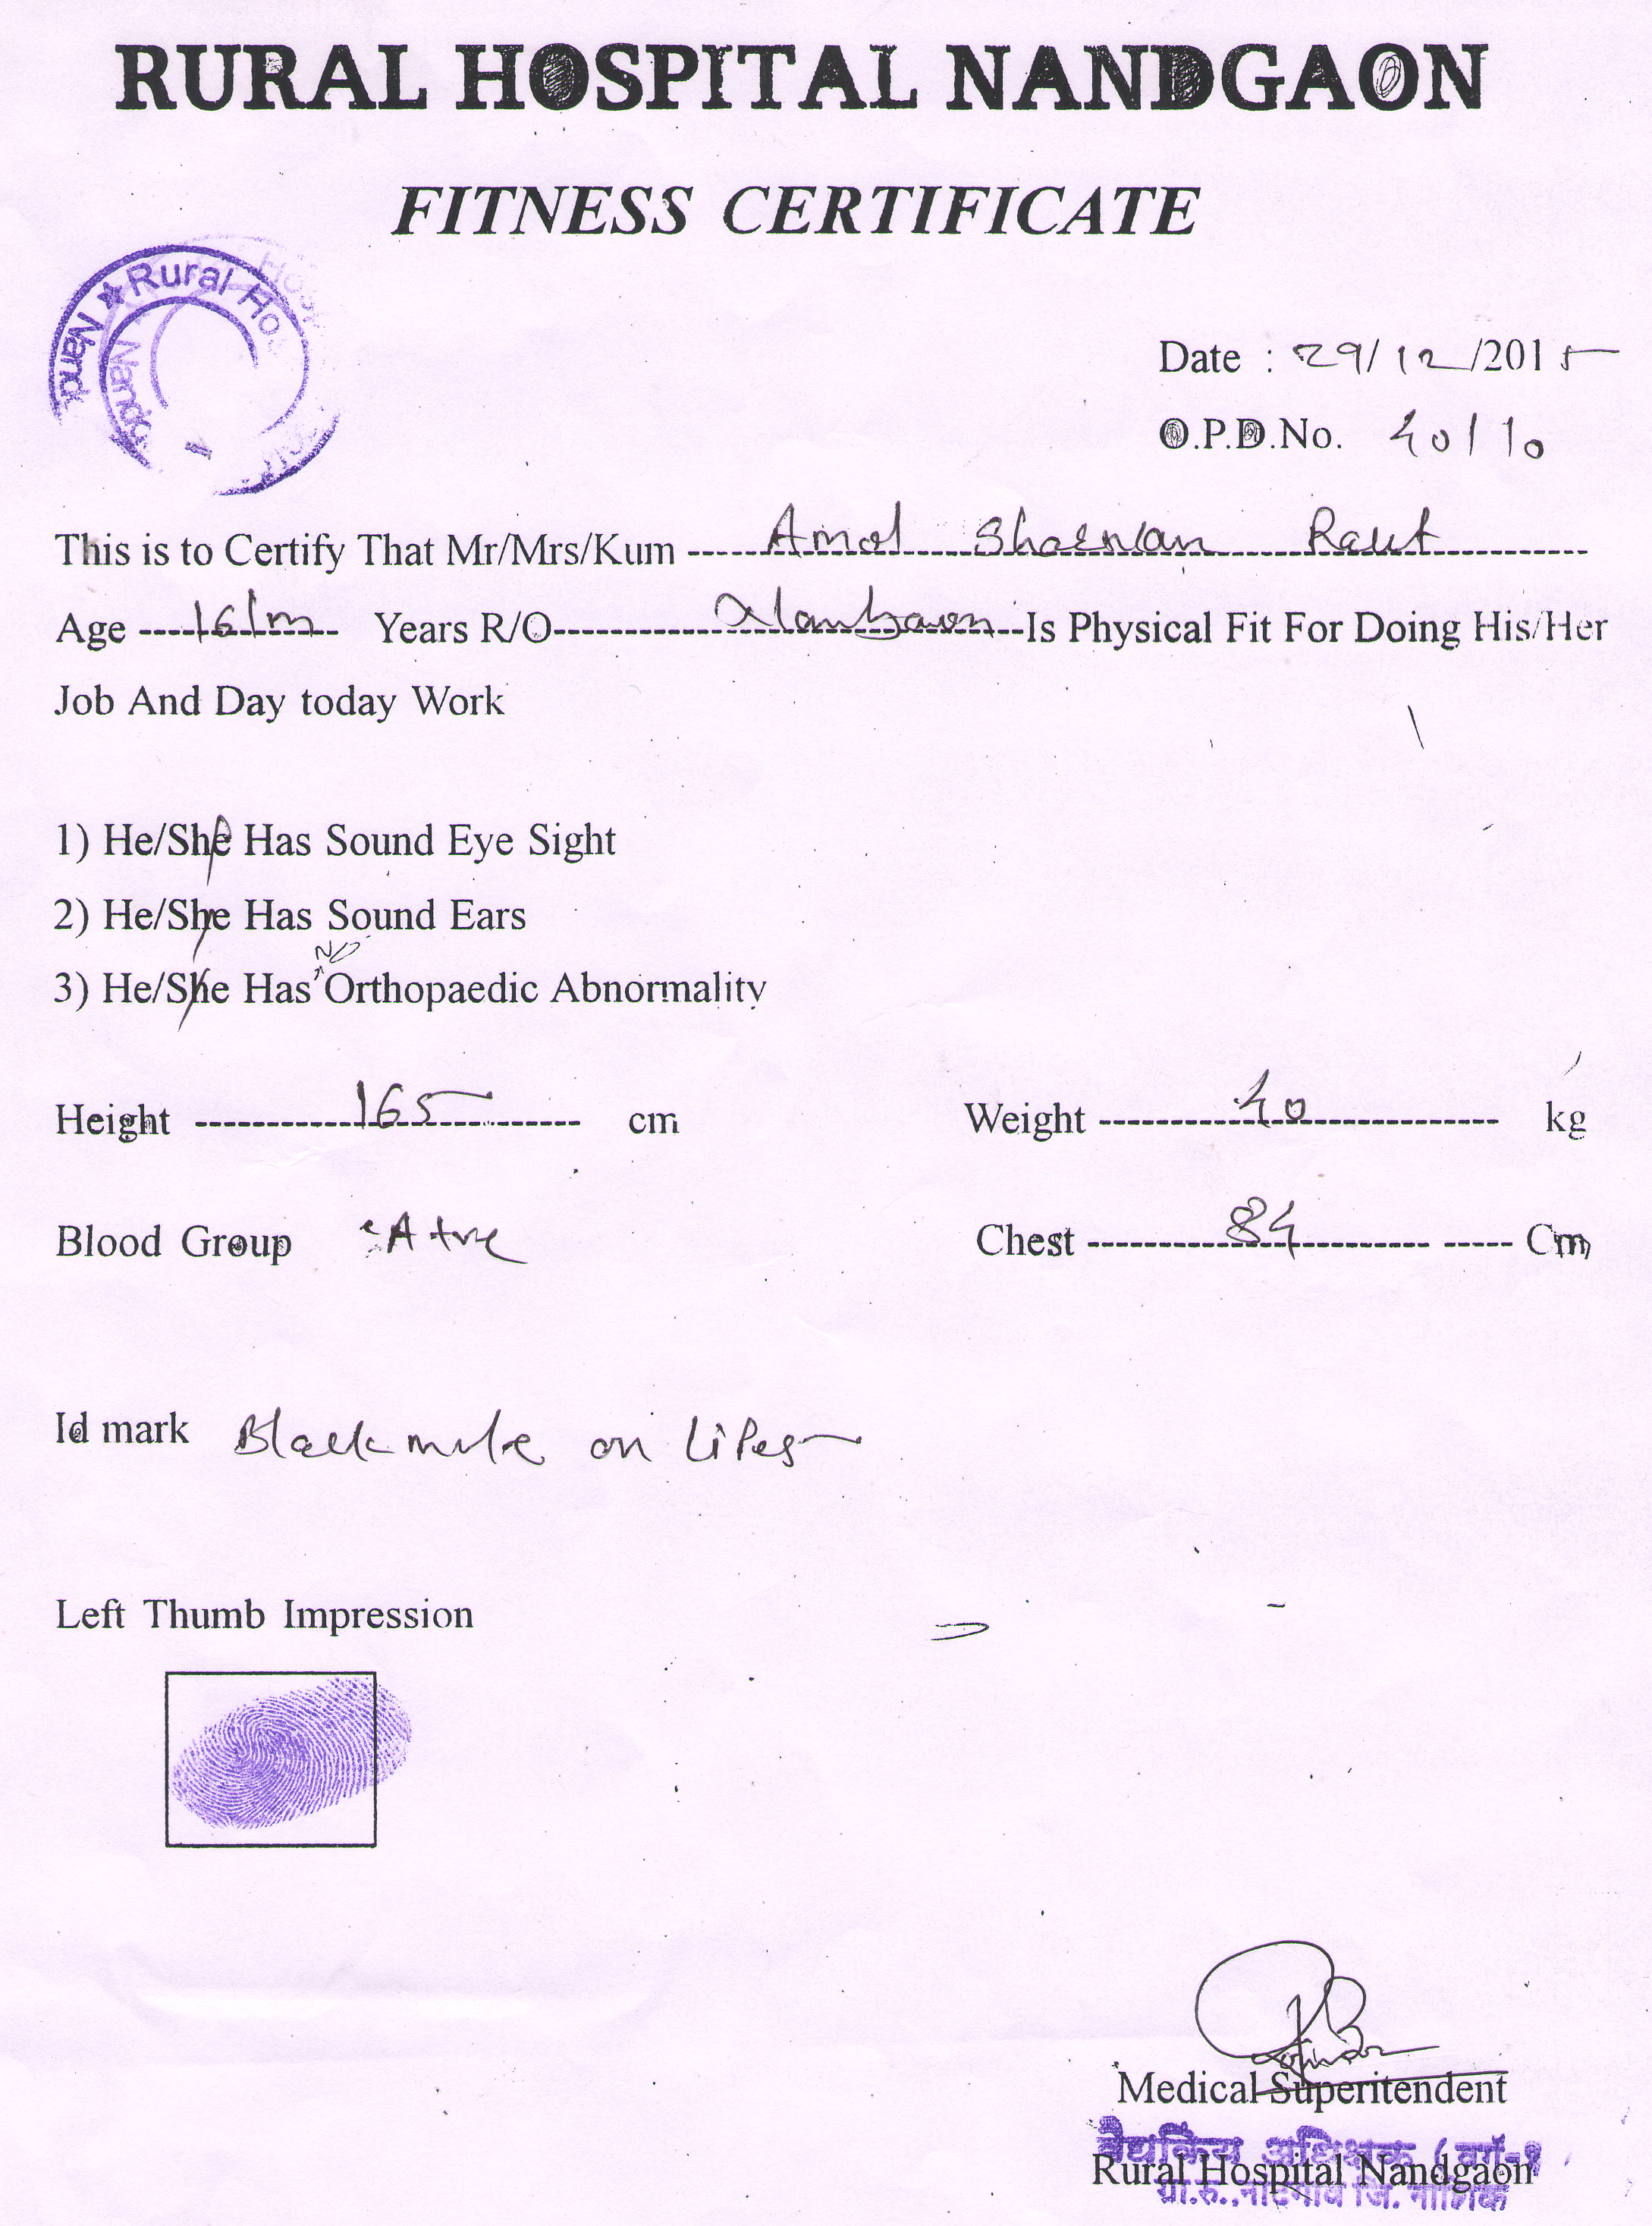 RURAL HOSPITAL NANDGAON
FITNESS CERTIFICATE
Rural Ho
Nand
Date : 29/12/2015
O.P.D.No. 40110
This is to Certify That Mr/Mrs/Kum Amol Raut
Age 16/m Years R/O Is Physical Fit For Doing His/Her
Job And Day today Work
1) He/She Has Sound Eye Sight
2) He/She Has Sound Ears
3) He/She Has NO Orthopaedic Abnormality
Height 165 cm Weight 40 kg
Blood Group A +ve Chest 84 Cm
Id mark Black mole on Lipes
Left Thumb Impression
Medical Superitendent
वैद्यकिय अधिक्षक (वर्ग-१
Rural Hospital Nandgaon
ग्रा.रु.,नांदगांव जि. नाशिक